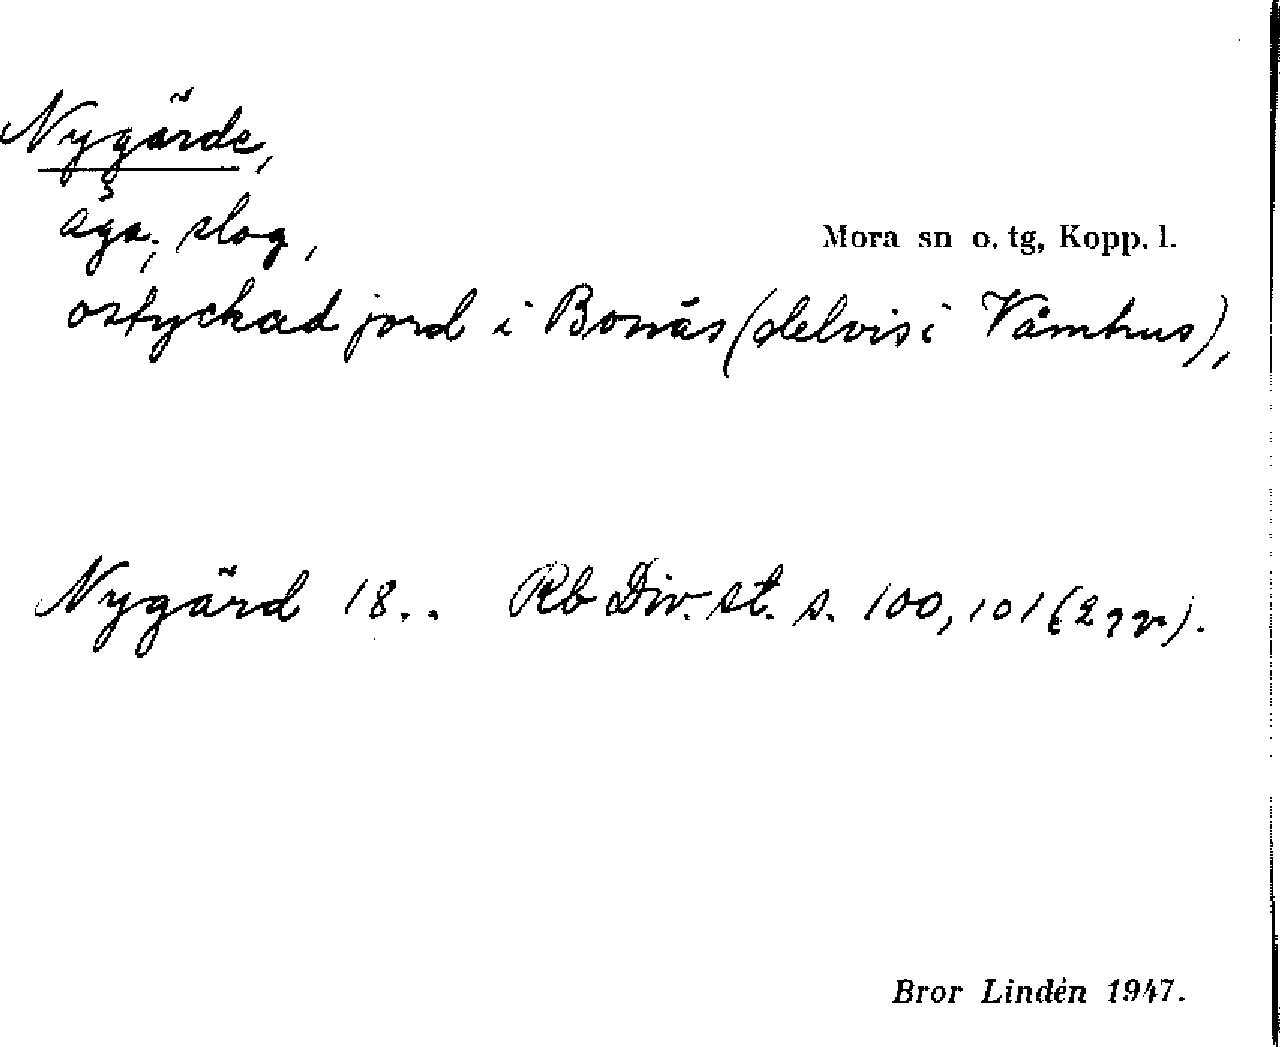 Nygärde,
äga, slog,
Mora sn o. tg, Kopp. l.
ostyckad jord i Bonäs (delvis i Våmhus),
Nygärd 18.. Rb Div. st. s. 100, 101 (2 ggr).
Bror Lindén 1947.